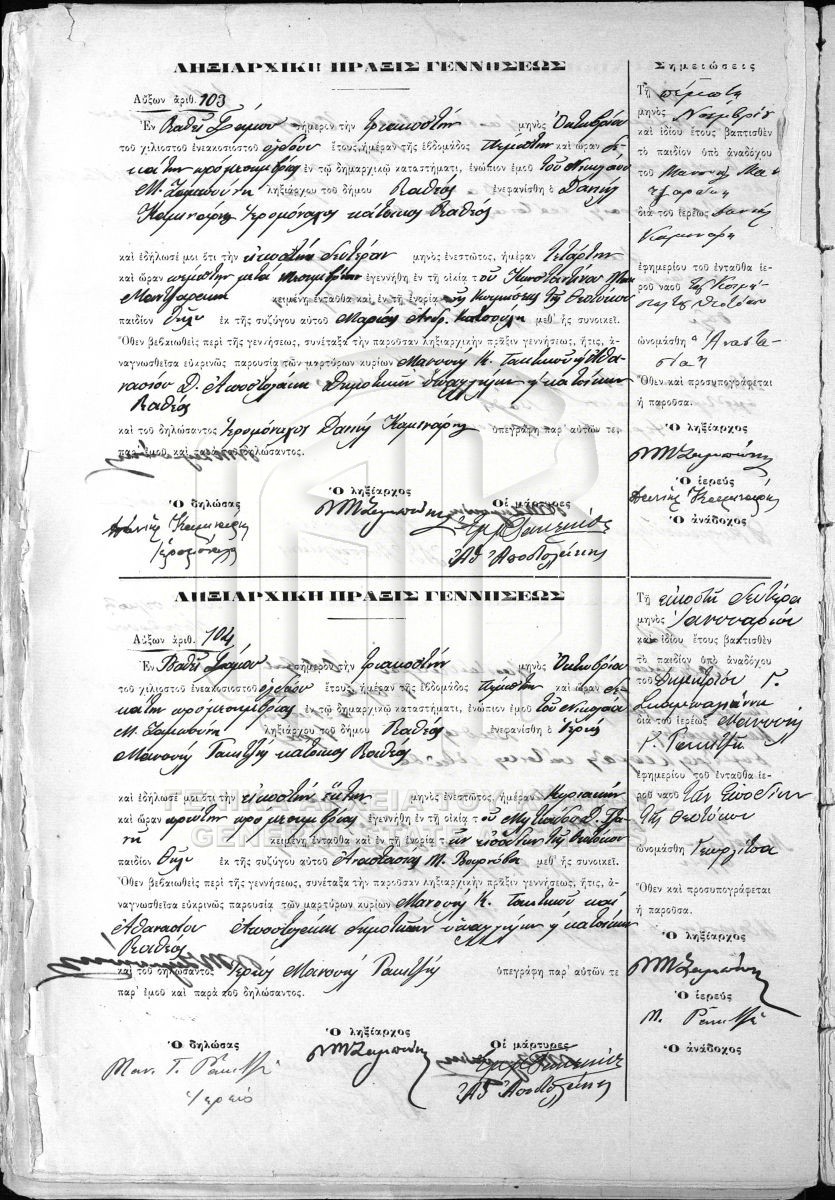 ΛΗΞΙΑΡΧΙΚΗ ΠΡΑΞΙΣ ΓΕΝΝΗΣΕΩΣ
Αὔξων ἀριθ. 103
Ἐν Βαθεῖ Σάμου σήμερον τὴν τριακοστήν μηνὸς Ὀκτωβρίου
τοῦ χιλιοστοῦ ἐνεακοσιοστοῦ ὀγδόου ἔτους, ἡμέραν τῆς ἑβδομάδος Πέμπτην καὶ ὥραν δε-
κάτην πρό μεσημβρίας ἐν τῷ δημαρχικῷ καταστήματι, ἐνώπιον ἐμοῦ τοῦ Νικολάου
Μ. ληξιάρχου τοῦ δήμου Βαθέος ἐνεφανίσθη ὁ Δανιήλ
Καμινάρης Ἱερομόναχος κάτοικος Βαθέος
καὶ ἐδήλωσέ μοι ὅτι τὴν εἰκοστήν δευτέραν μηνὸς ἐνεστῶτος, ἡμέραν Τετάρτην
καὶ ὥραν πέμπτην μετά μεσημβρίαν ἐγεννήθη ἐν τῇ οἰκίᾳ τοῦ Κωνσταντίνου
κειμένη ἐνταῦθα καὶ ἐν τῇ ἐνορίᾳ τῆς Κοιμήσεως τῆς Θεοτόκου
παιδίον θῆλυ ἐκ τῆς συζύγου αὐτοῦ Μαρίας Ἀνδρ. μεθ' ἧς συνοικεῖ.
Ὅθεν βεβαιωθεὶς περὶ τῆς γεννήσεως, συνέταξα τὴν παροῦσαν ληξιαρχικὴν πρᾶξιν γεννήσεως, ἥτις, ἀ-
ναγνωσθεῖσα εὐκρινῶς παρουσίᾳ τῶν μαρτύρων κυρίων Μανουήλ Κ. Τακτικοῦ καί Ἀθα-
νασίου Δ. Ἀποστολάκη δημοτικῶν ὑπαλλήλων καί κατοίκων
Βαθέος
καὶ τοῦ δηλώσαντος Ἱερομόναχος Δανιήλ Καμινάρης ὑπεγράφη παρ' αὐτῶν τε,
παρ' ἐμοῦ καὶ παρὰ τοῦ δηλώσαντος.
Ὁ δηλώσας
Ὁ ληξίαρχος
Οἱ μάρτυρες
Δανιήλ Καμινάρης
Ἱερομόναχος
Ἀθ Ἀποστολάκης
Σημειώσεις
Τῇ πέμπτῃ
μηνὸς Νοεμβρίου
καὶ ἰδίου ἔτους βαπτισθὲν
τὸ παιδίον ὑπὸ ἀναδόχου
τοῦ Μανουήλ
διὰ τοῦ ἱερέως Δανιήλ
Καμινάρη
ἐφημερίου τοῦ ἐνταῦθα ἱε-
ροῦ ναοῦ τῆς Κοιμή-
σεως τῆς Θεοτόκου
ὠνομάσθη Ἀναστα-
σία
Ὅθεν καὶ προσυπογράφεται
ἡ παροῦσα.
Ὁ ληξίαρχος
Ὁ ἱερεύς
Δανιήλ Καμινάρης
Ὁ ἀνάδοχος
ΛΗΞΙΑΡΧΙΚΗ ΠΡΑΞΙΣ ΓΕΝΝΗΣΕΩΣ
Αὔξων ἀριθ. 104
Ἐν Βαθεῖ Σάμου σήμερον τὴν τριακοστήν μηνὸς Ὀκτωβρίου
τοῦ χιλιοστοῦ ἐνεακοσιοστοῦ ὀγδόου ἔτους, ἡμέραν τῆς ἑβδομάδος Πέμπτην καὶ ὥραν δε-
κάτην πρό μεσημβρίας ἐν τῷ δημαρχικῷ καταστήματι, ἐνώπιον ἐμοῦ τοῦ Νικολάου
Μ. ληξιάρχου τοῦ δήμου Βαθέος ἐνεφανίσθη ὁ Ἱερεύς
Μανουήλ κάτοικος Βαθέος
καὶ ἐδήλωσέ μοι ὅτι τὴν εἰκοστήν ἕκτην μηνὸς ἐνεστῶτος, ἡμέραν Κυριακήν
καὶ ὥραν πρώτην πρό μεσημβρίας ἐγεννήθη ἐν τῇ οἰκίᾳ τοῦ
κειμένη ἐνταῦθα καὶ ἐν τῇ ἐνορίᾳ τῶν εἰσοδίων τῆς Θεοτόκου
παιδίον θῆλυ ἐκ τῆς συζύγου αὐτοῦ Ἀναστασίας Μ. μεθ' ἧς συνοικεῖ.
Ὅθεν βεβαιωθεὶς περὶ τῆς γεννήσεως, συνέταξα τὴν παροῦσαν ληξιαρχικὴν πρᾶξιν γεννήσεως, ἥτις, ἀ-
ναγνωσθεῖσα εὐκρινῶς παρουσίᾳ τῶν μαρτύρων κυρίων Μανουήλ Κ. Τακτικοῦ καί
Ἀθανασίου Ἀποστολάκη δημοτικῶν ὑπαλλήλων καί κατοίκων
Βαθέος
καὶ τοῦ δηλώσαντος Ἱερεύς Μανουήλ ὑπεγράφη παρ' αὐτῶν τε
παρ' ἐμοῦ καὶ παρὰ τοῦ δηλώσαντος.
Ὁ δηλώσας
Ὁ ληξίαρχος
Οἱ μάρτυρες
Μαν. Γ.
Ἀθ Ἀποστολάκης
Τῇ εἰκοστῇ δευτέρᾳ
μηνὸς Ἰανουαρίου
καὶ ἰδίου ἔτους βαπτισθὲν
τὸ παιδίον ὑπὸ ἀναδόχου
τοῦ Δημητρίου Γ.
διὰ τοῦ ἱερέως Μανουήλ
Γ.
ἐφημερίου τοῦ ἐνταῦθα ἱε-
ροῦ ναοῦ τῶν Εἰσοδίων
τῆς Θεοτόκου
ὠνομάσθη Γεωργίτσα
Ὅθεν καὶ προσυπογράφεται
ἡ παροῦσα.
Ὁ ληξίαρχος
Ὁ ἱερεύς
Ὁ ἀνάδοχος
ΓΕΝΙΚΑ ΑΡΧΕΙΑ
GENERAL STATE